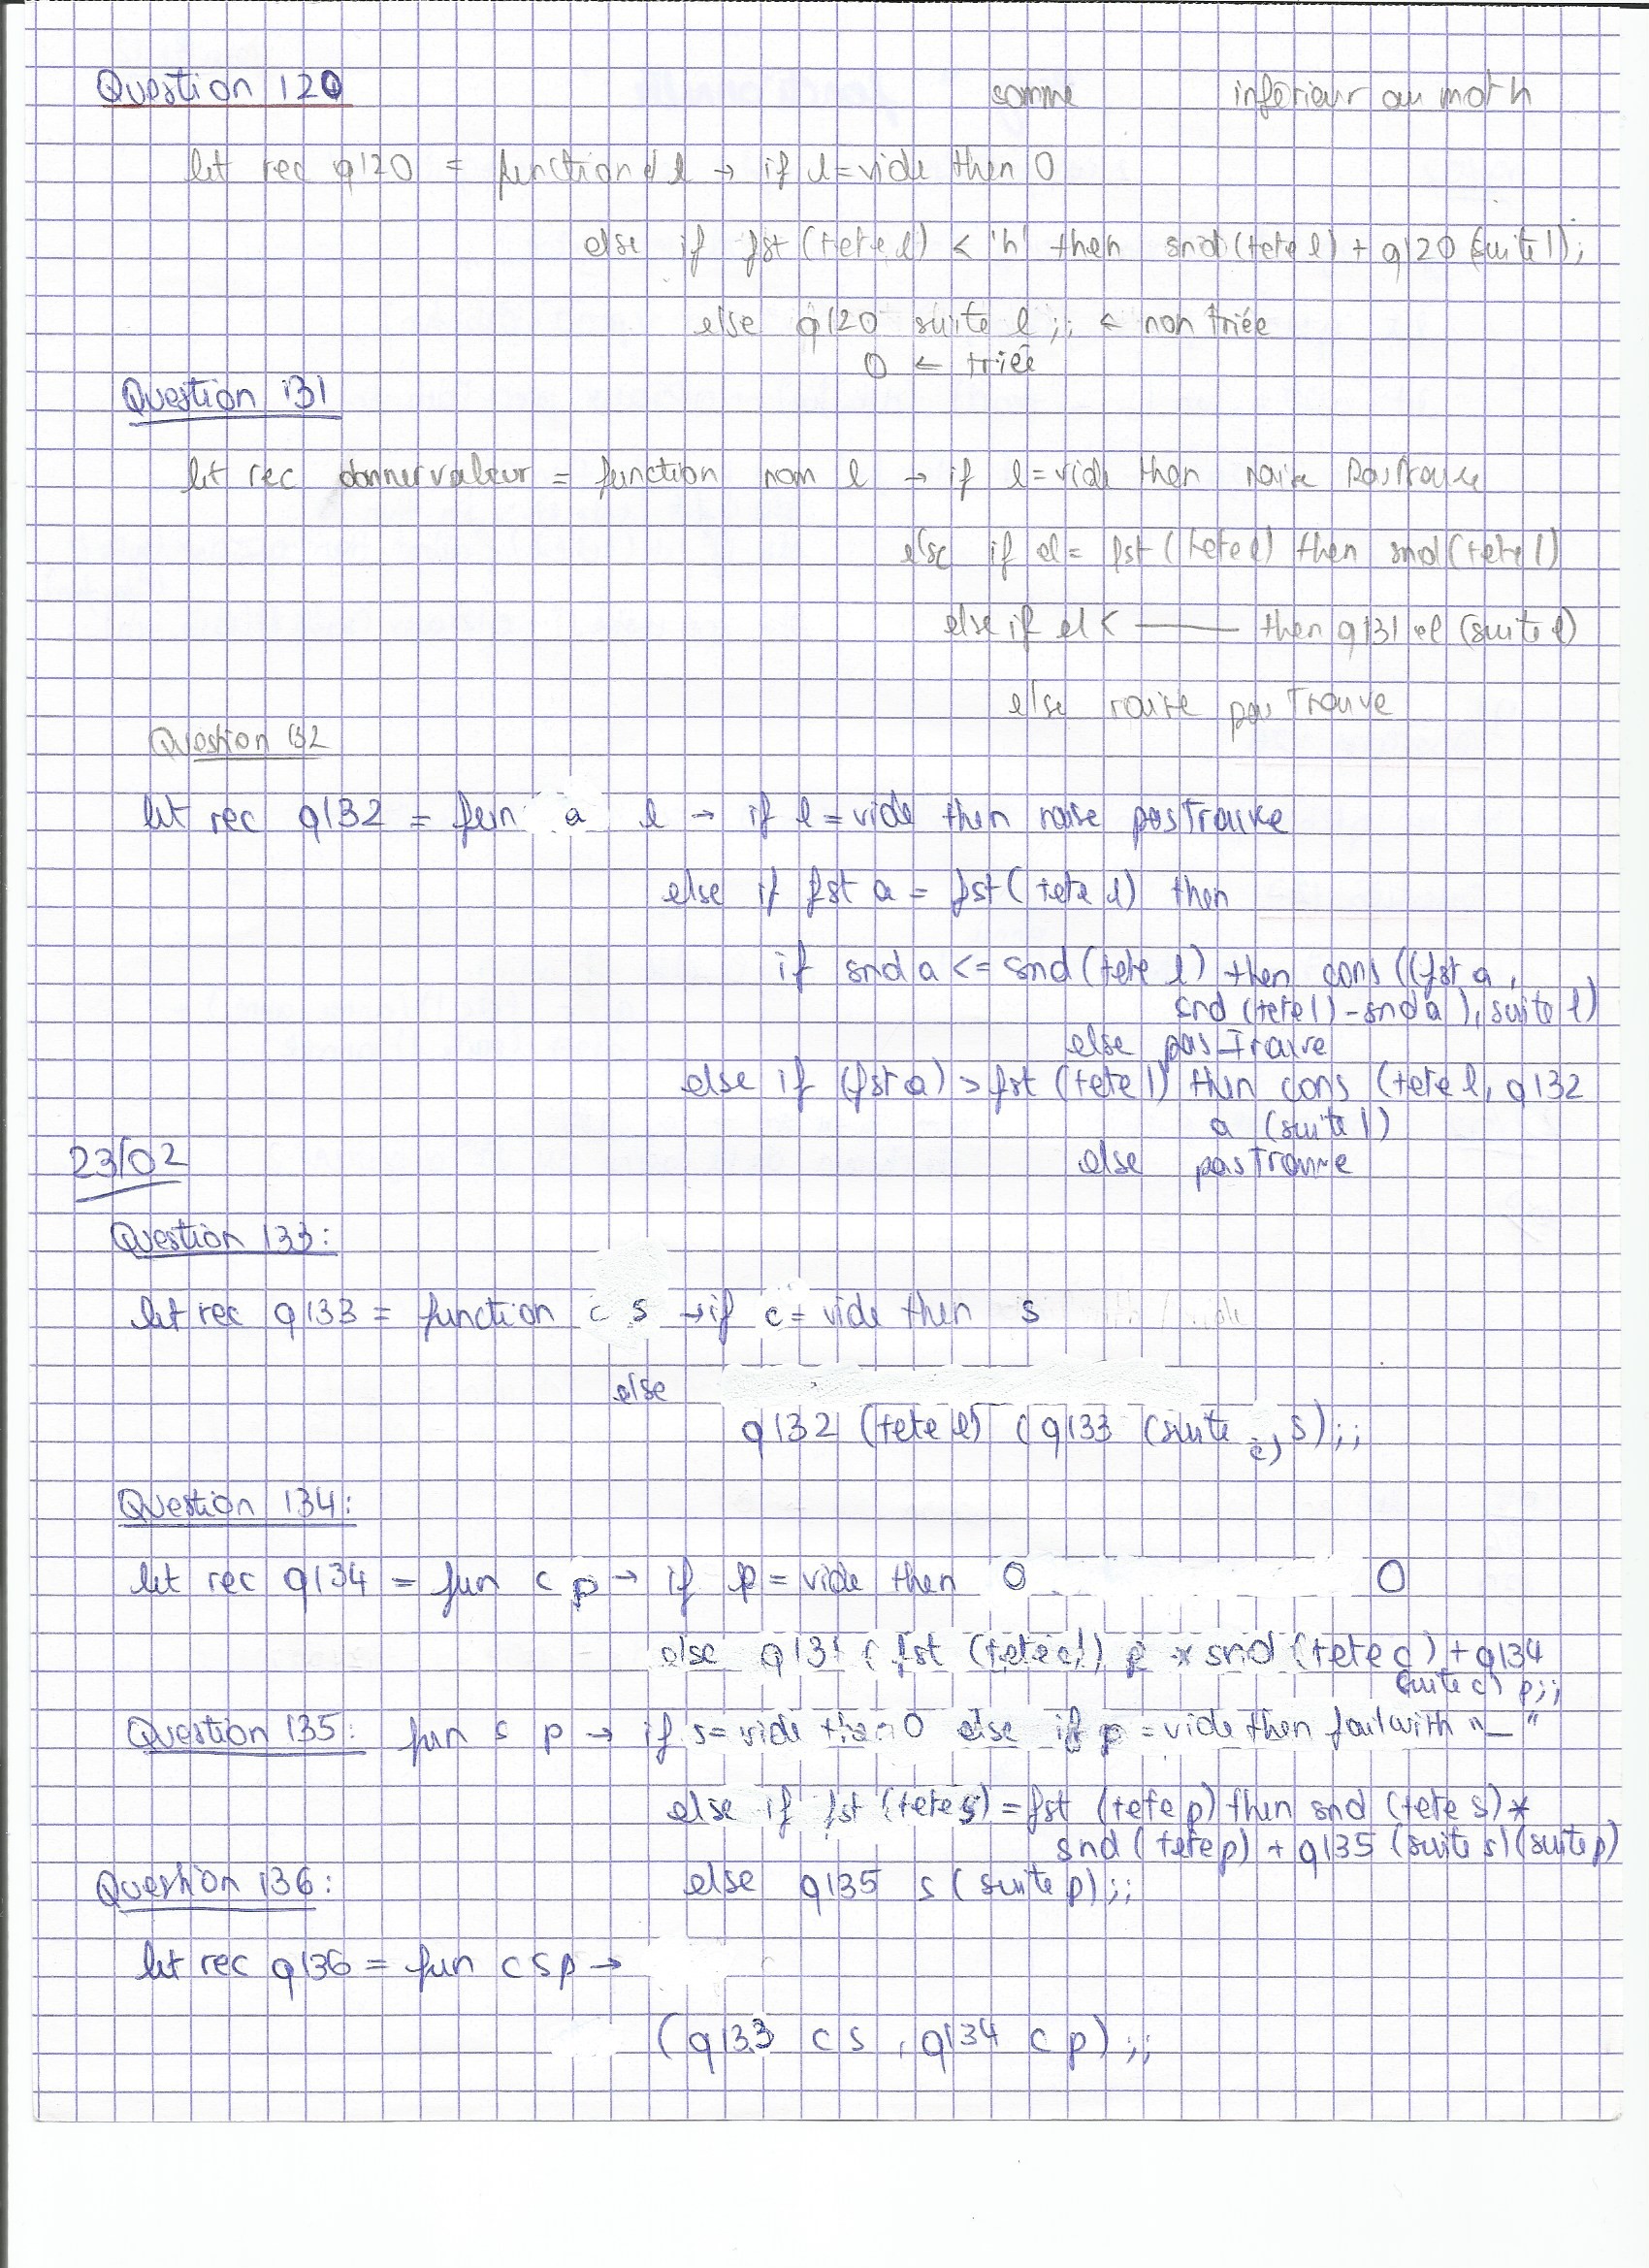 Question 120 somme inférieur au mot h
let rec q120 = function l → if l=vide then 0
else if fst (tete l) < 'h' then snd (tete l) + q120 (suite l);
else q120 suite l ;; ← non triée
0 ← triée
Question 131
let rec donnervaleur = function nom l → if l=vide then raise PasTrouve
else if el= fst (tete l) then snd (tete l)
else if el < —— then q131 el (suite l)
else raise pasTrouve
Question 132
let rec q132 = fun a l → if l=vide then raise pasTrouve
else if fst a = fst (tete l) then
if snd a <= snd (tete l) then cons ((fst a,
snd (tete l) - snd a), suite l)
else pasTrouve
else if (fst a) > fst (tete l) then cons (tete l, q132
a (suite l)
else pasTrouve
23/02
Question 133:
let rec q133 = function c s → if c = vide then s
else
q132 (tete l) (q133 (suite c) s);;
Question 134:
let rec q134 = fun c p → if p = vide then 0 0
else q131 (fst (tete c)) p * snd (tete c) + q134
(suite c) p;;
Question 135: fun s p → if s=vide then 0 else if p = vide then failwith "_"
else if fst (tete s) = fst (tete p) then snd (tete s) *
snd (tete p) + q135 (suite s) (suite p)
else q135 s (suite p);;
Question 136:
let rec q136 = fun c s p →
(q133 c s , q134 c p);;